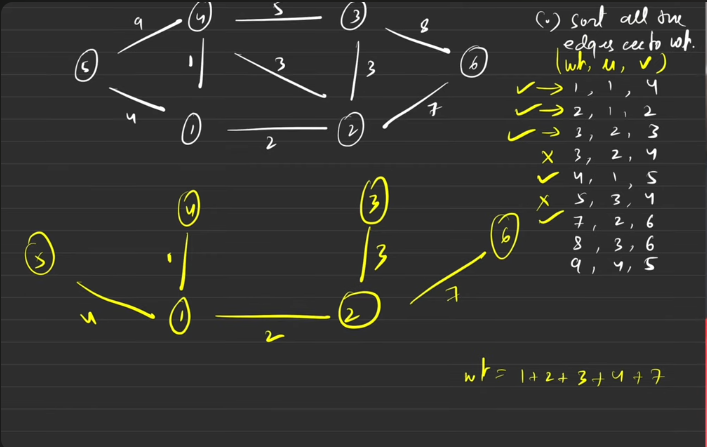 9
5
8
4
3
5
1
3
3
6
4
7
1
2
2
(.) Sort all the
edges acc to wt.
(wt, u, v)
✓ → 1, 1, 4
✓ → 2, 1, 2
✓ → 3, 2, 3
x 3, 2, 4
✓ 4, 1, 5
x 5, 3, 4
✓ 7, 2, 6
8, 3, 6
9, 4, 5
4
3
6
5
1
3
4
1
2
2
7
wt = 1+2+3+4+7